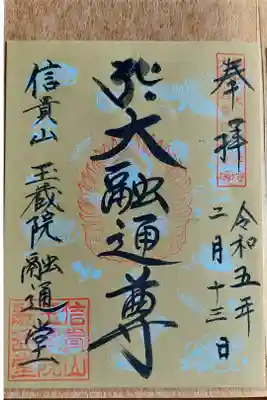 奉拝
令和五年
二月十三日
大融通尊
信貴山 玉蔵院融通堂